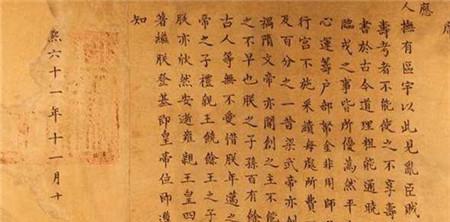 應
人撫有區宇以此見亂臣賊
壽考者不能使之不享壽
書於古今道理粗能通曉
臨戎之事皆所優為然平
心運籌戶部帑金非用師
行宮不施采繢每處所費
及百分之一昔梁武帝亦
禍隋文帝亦開創之主不能
之不早也朕之子孫百有餘
古人等無不愛惜朕年邁之
帝之子禮親王饒餘王之子
朕亦欣然安逝雍親王皇四
著繼朕登基即皇帝位即遵
知
熙六十一年十一月十